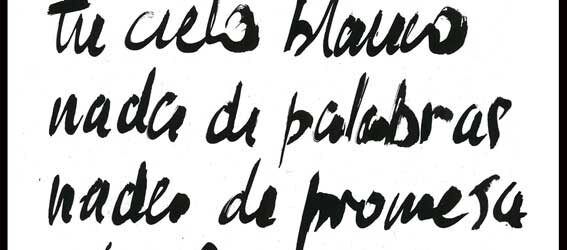 tu cielo blanco
nada de palabras
nada de promesa